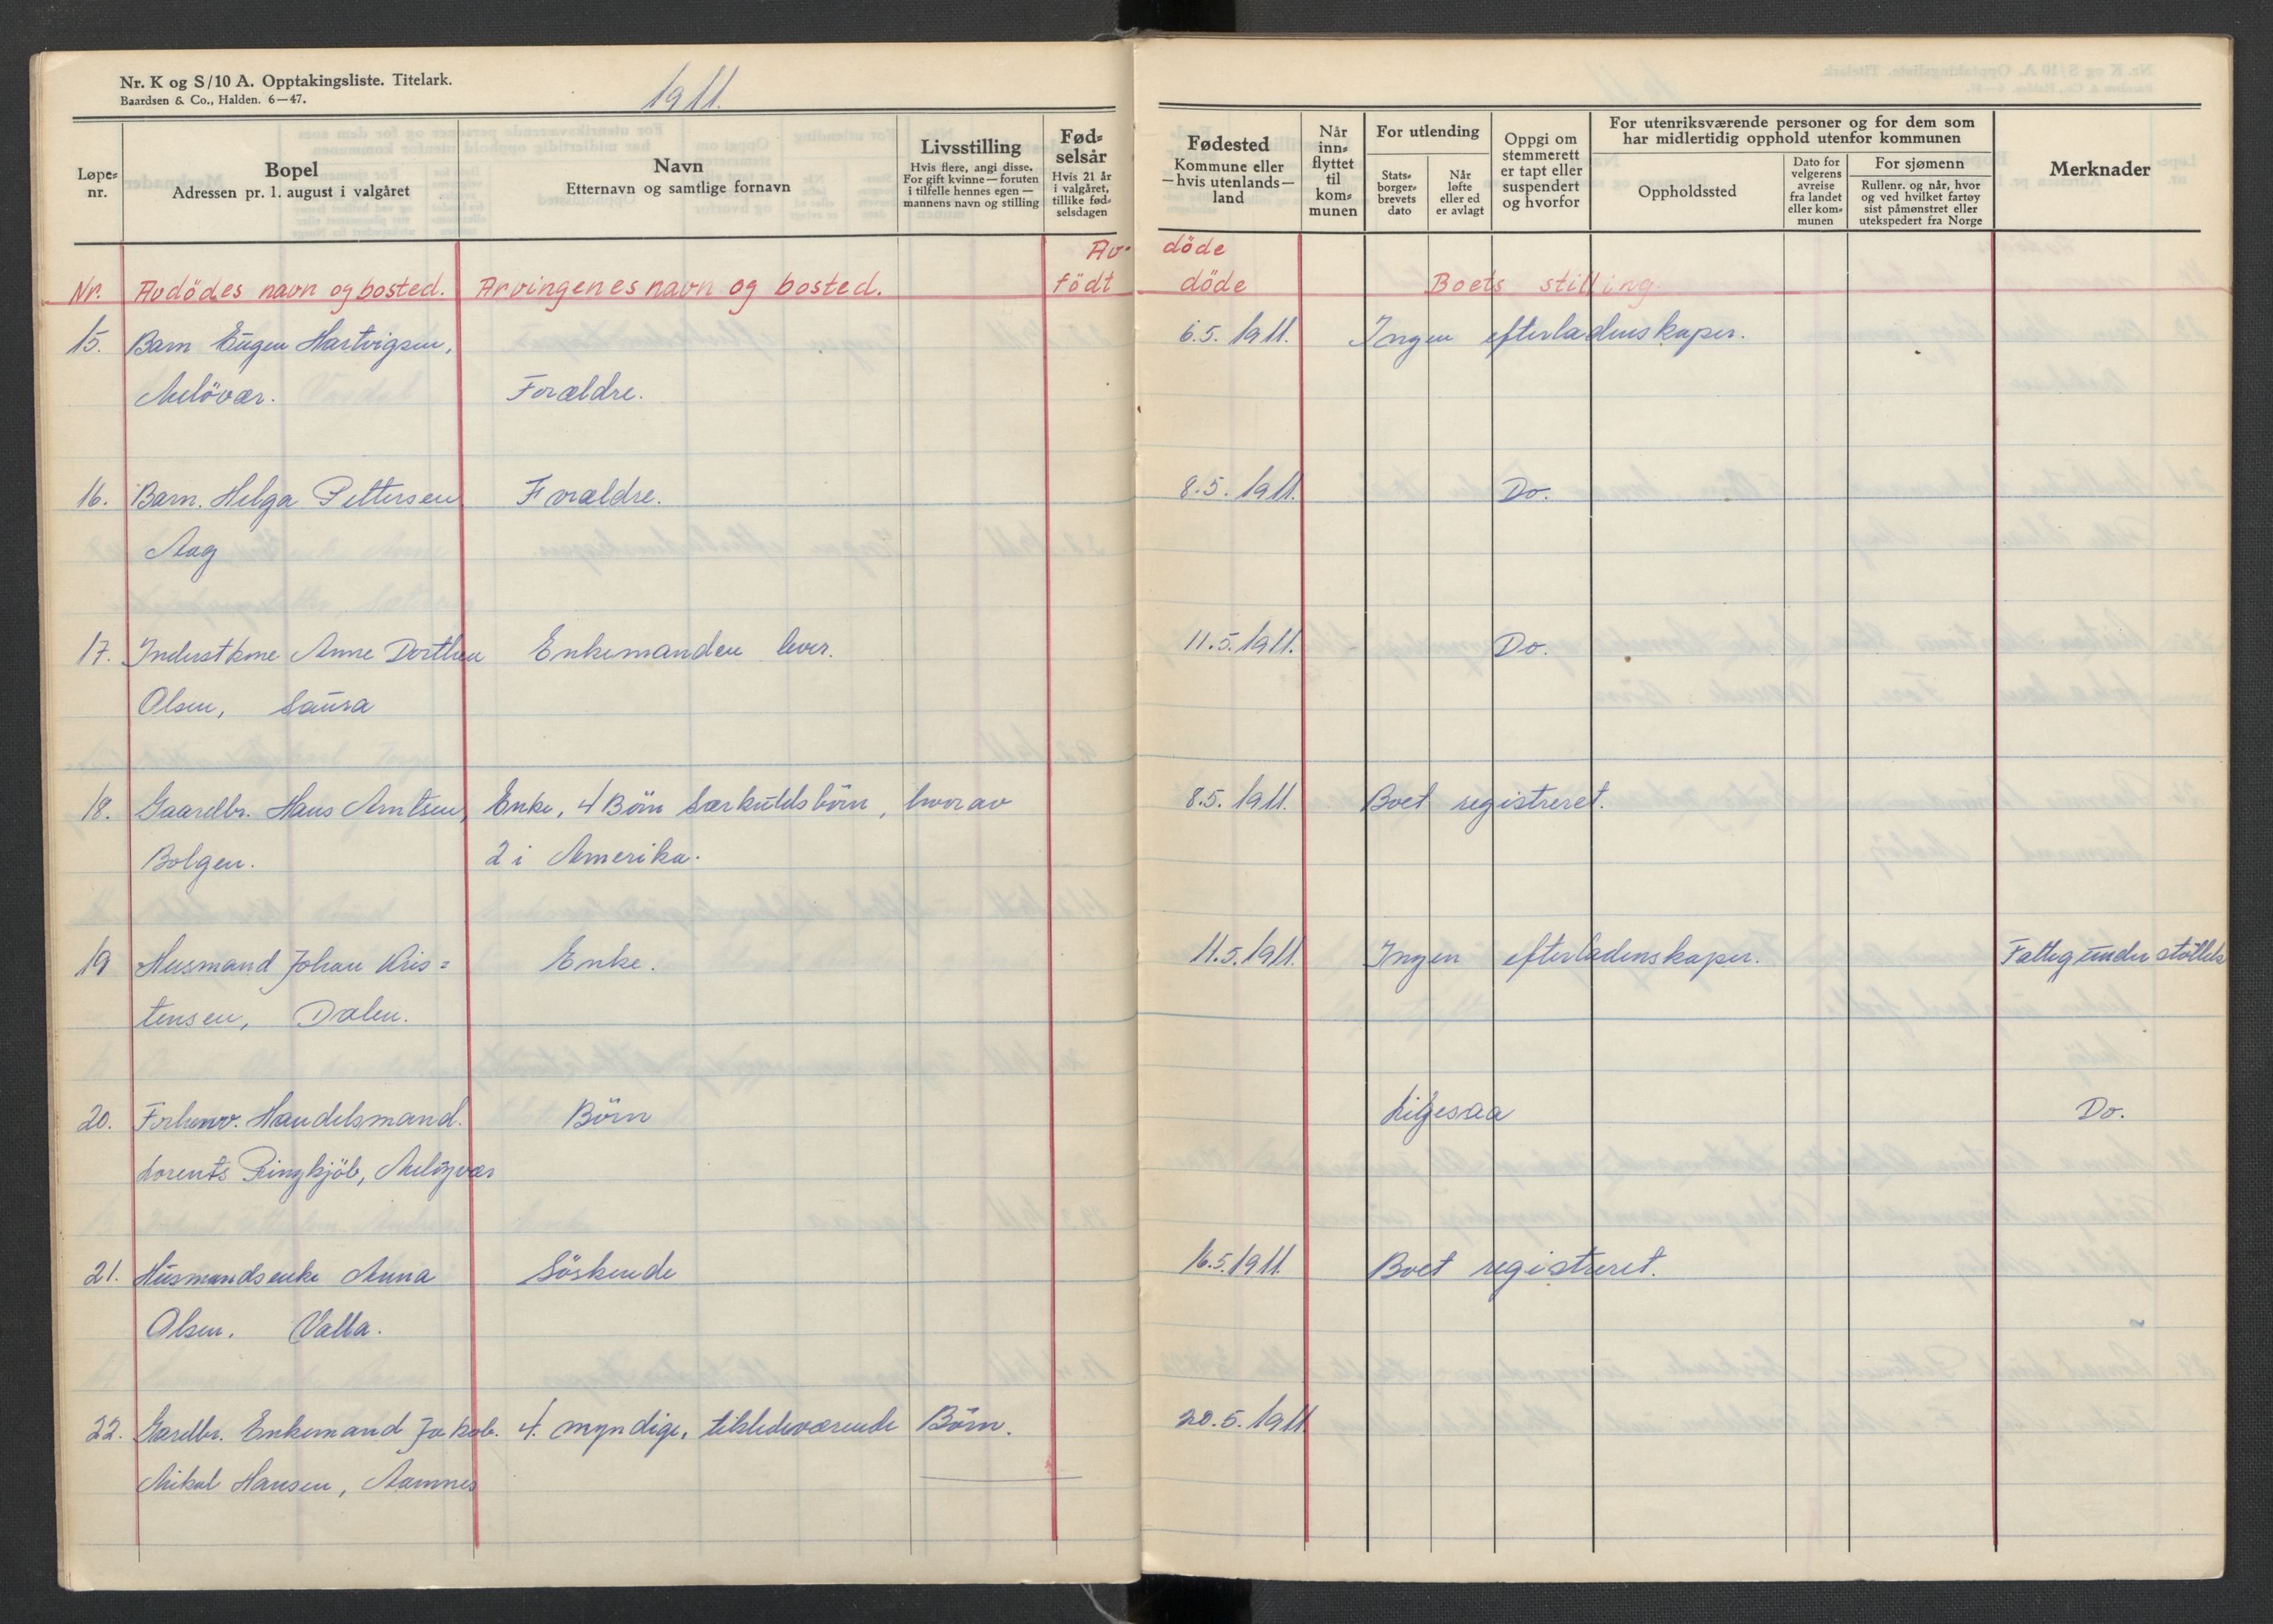 Nr. K og S/10 A. Opptakingsliste. Titelark.
Baardsen & Co., Halden. 6—47.
1911.
Løpe=
nr.
Bopel
Adressen pr. 1. august i valgåret
Navn
Etternavn og samtlige fornavn
Livsstilling
Hvis flere, angi disse.
For gift kvinne — foruten
i tilfelle hennes egen —
mannens navn og stilling
Fød=
selsår
Hvis 21 år
i valgåret,
tillike fød=
selsdagen
Fødested
Kommune eller
— hvis utenlands —
land
Når
inn=
flyttet
til
kom=
munen
For utlending
Stats=
borger=
brevets
dato
Når
løfte
eller ed
er avlagt
Oppgi om
stemmerett
er tapt eller
suspendert
og hvorfor
For utenriksværende personer og for dem som
har midlertidig opphold utenfor kommunen
Oppholdssted
Dato for
velgerens
avreise
fra landet
eller kom=
munen
For sjømenn
Rullenr. og når, hvor
og ved hvilket fartøy
sist påmønstret eller
utekspedert fra Norge
Merknader
Av- döde
Nr. Avdödes navn og bosted. Arvingenes navn og bosted. födt döde Boets stilling.
15. Barn Eugen Hartvigsen, 6.5.1911. Ingen efterladenskaper.
Melövær. Forældre.
16. Barn. Helga Pettersen Forældre. 8.5.1911. Do.
Aag
17. Inderstkone Anne Dorthea Enkemanden lever. 11.5.1911. Do.
Olsen, Saura
18. Gaardbr. Hans Arntsen, Enke, 4 Börn Særkuldsbörn, hvorav 8.5.1911. Boet registreret.
Bolgen. 2 i Amerika.
19 Husmand Johan Kris= Enke. 11.5.1911. Ingen efterladenskaper. Fattigunderstöttels
tensen, Dalen.
20. Forhenv. Handelsmand. Börn Ligesaa Do.
Lorents Ringkjöb, Melöyvær
21. Husmandsenke Anna Söskende 16.5.1911. Boet registreret.
Olsen. Valla.
22. Gardbr. Enkemand Jakob. 4. myndige, tilstedeværende Börn. 20.5.1911.
Mikal Hansen, Aamnes